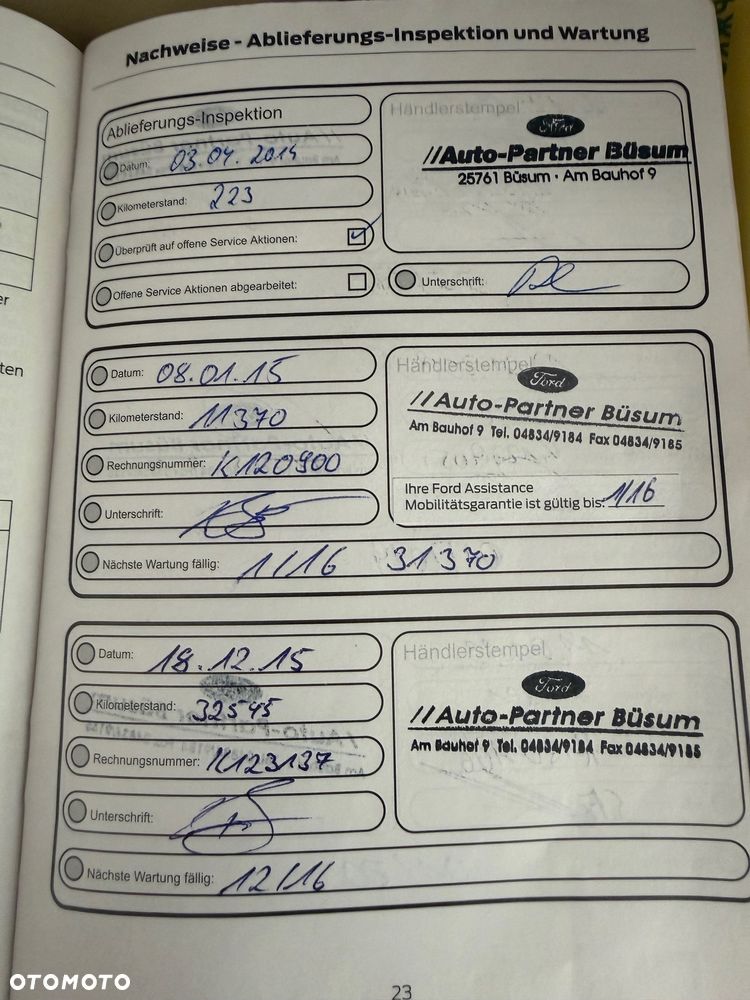 Nachweise - Ablieferungs-Inspektion und Wartung
Ablieferungs-Inspektion
Datum: 03.04.2014
Kilometerstand: 223
Überprüft auf offene Service Aktionen:
Offene Service Aktionen abgearbeitet:
Händlerstempel
Ford
//Auto-Partner Büsum
25761 Büsum · Am Bauhof 9
Unterschrift:
Datum: 08.01.15
Kilometerstand: 11370
Rechnungsnummer: K120900
Unterschrift:
Nächste Wartung fällig: 1/16 31370
Händlerstempel
Ford
//Auto-Partner Büsum
Am Bauhof 9 Tel. 04834/9184 Fax 04834/9185
Ihre Ford Assistance
Mobilitätsgarantie ist gültig bis: 1/16
Datum: 18.12.15
Kilometerstand: 32545
Rechnungsnummer: K123137
Unterschrift:
Nächste Wartung fällig: 12/16
Händlerstempel
Ford
//Auto-Partner Büsum
Am Bauhof 9 Tel. 04834/9184 Fax 04834/9185
23
OTOMOTO